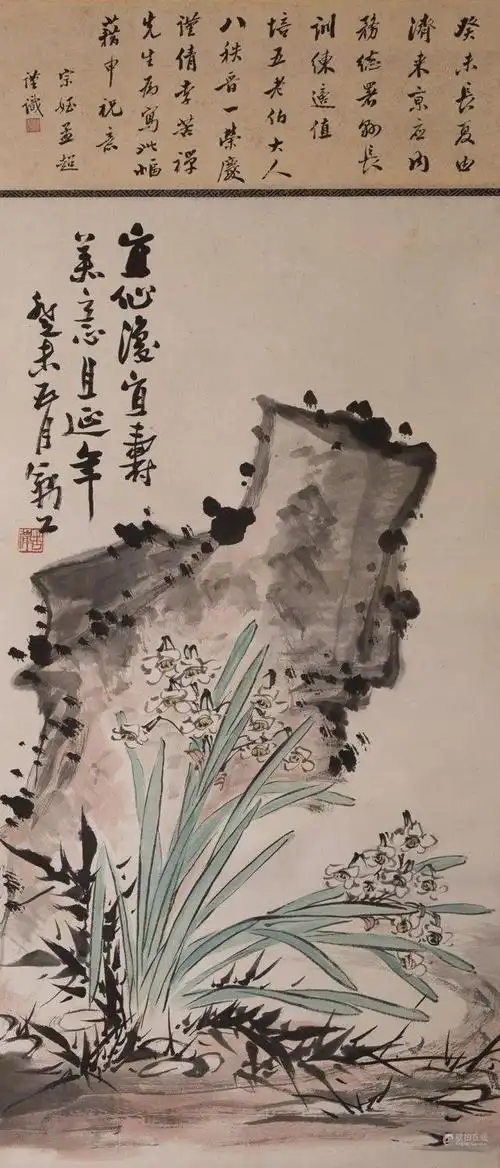 癸未長夏由
濟来京应内
務总署縣長
訓練適值
培五老伯大人
八秩晋一榮慶
謹倩李苦禪
先生為寫此幅
藉申祝意
宗姪孟超
謹識
宜仙復宜壽
美意且延年
癸未五月勵公